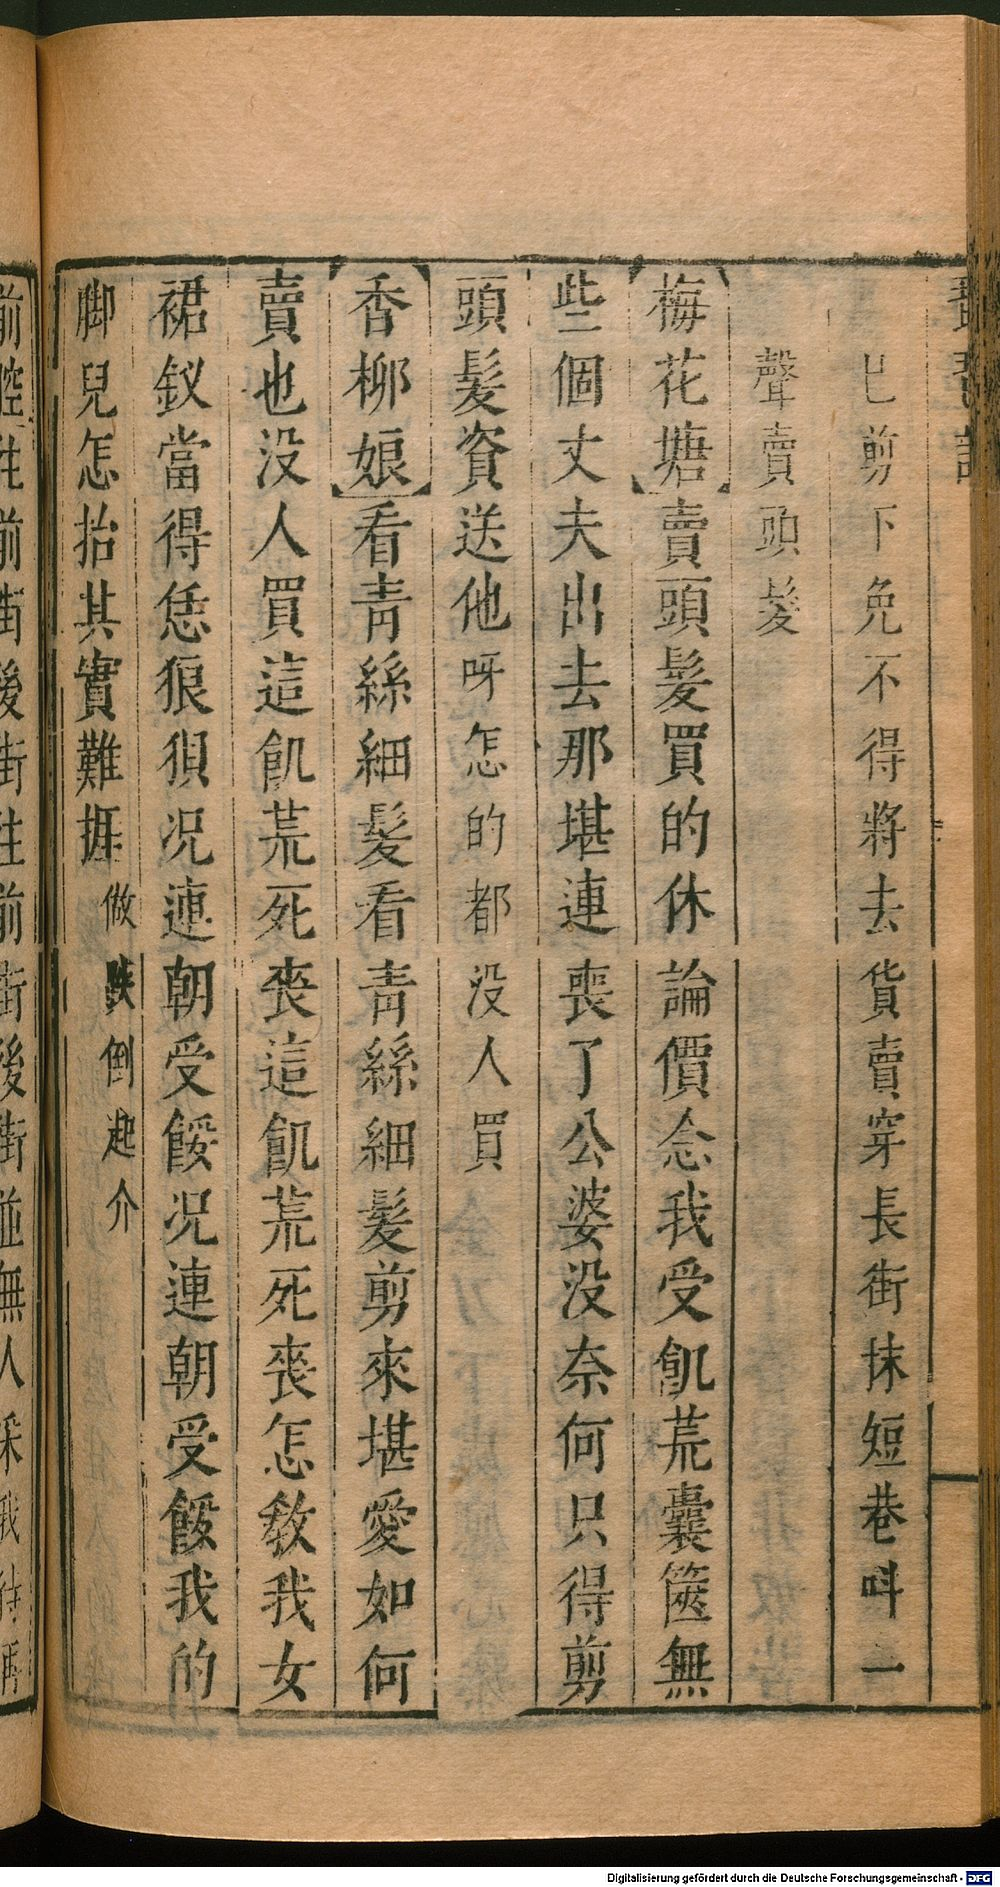 琵琶記
已剪下免不得將去貨賣穿長街抹短巷呌一
聲賣頭髮
【梅花塘】賣頭髮買的休論價念我受飢荒囊篋無
些個丈夫出去那堪連喪了公婆没奈何只得剪
頭髮資送他呀怎的都没人買
【香柳娘】看青絲細髮看青絲細髮剪來堪愛如何
賣也没人買這飢荒死喪這飢荒死喪怎教我女
裙釵當得恁狼狽况連朝受餒况連朝受餒我的
脚兒怎抬其實難捱做跌倒起介
前腔往前街後街往前街後街並無人採我待再
Digitalisierung gefördert durch die Deutsche Forschungsgemeinschaft - DFG